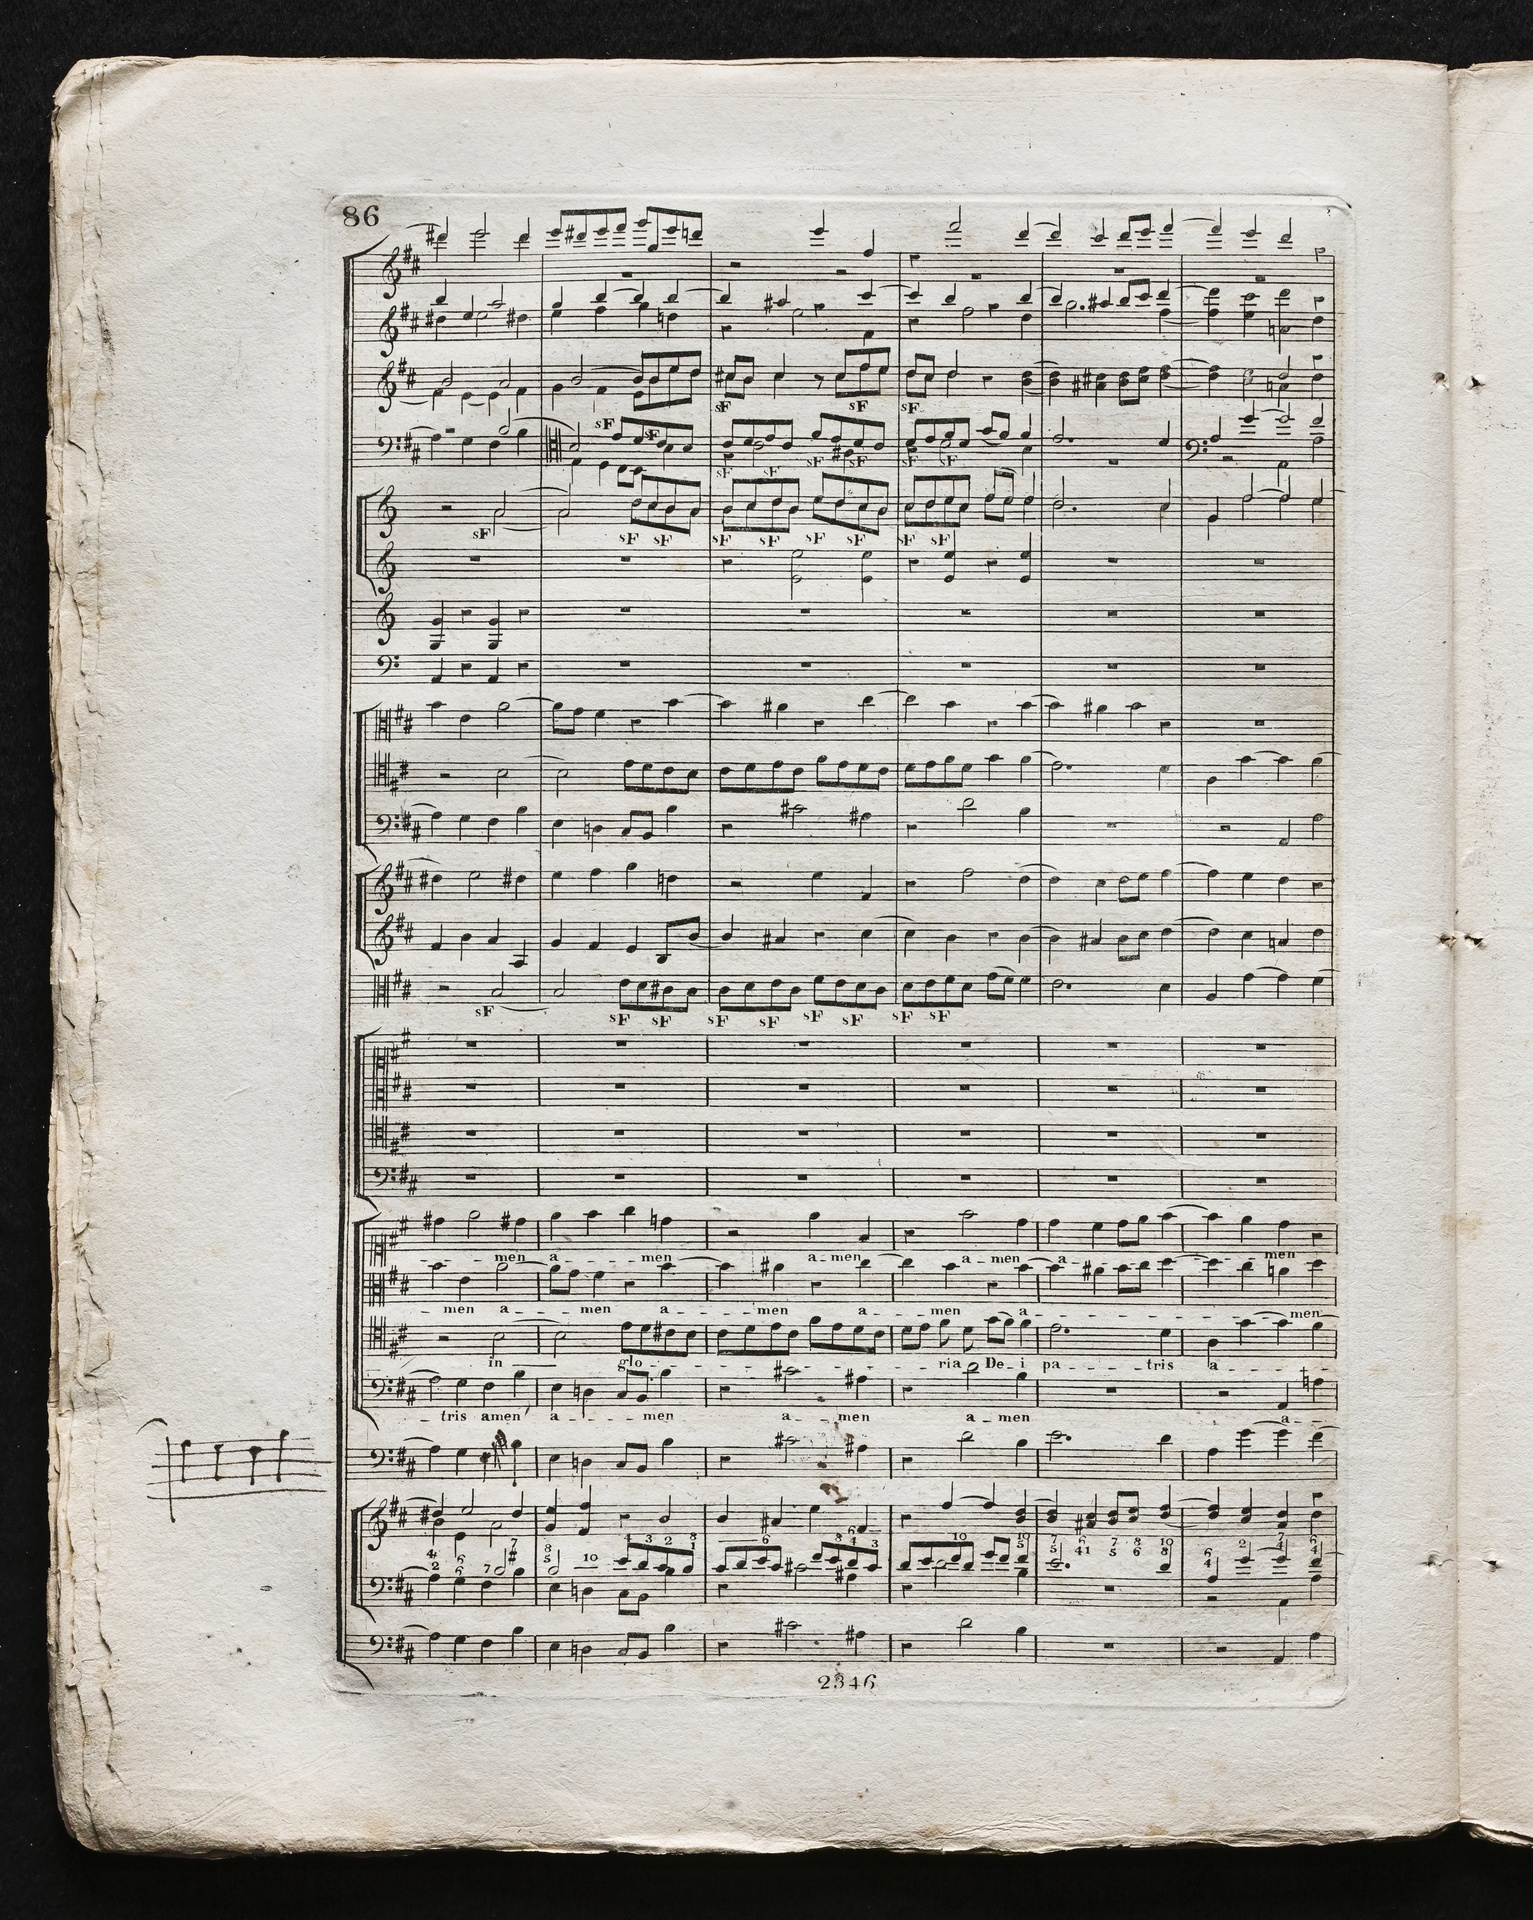 86
sF sF
sF sF sF
sF sF sF sF sF sF
sF sF sF sF sF sF sF sF sF
sF sF sF sF sF sF sF sF sF
men a - - - men a - men a - men a - - - men
men a - - men a - - - men a - - men a - - - men
in glo - - - ria De - i pa - - - tris a - - -
tris amen a - - - men a - men a - men a -
2346